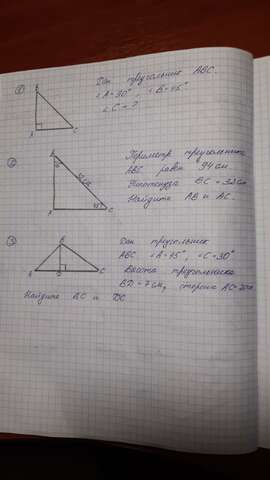 ① Дан треугольник ABC.
∠A=90°, ∠B=45°
∠C = ?
B
A
C
② Периметр треугольника
ABC равен 94 см
Гипотенуза BC = 32 см
Найдите AB и AC.
B
A
C
③ Дан треугольник
ABC ∠A=45°, ∠C=30°
Высота треугольника
BD = 7 см, сторона AC=
Найдите BC и DC
B
A
D
C